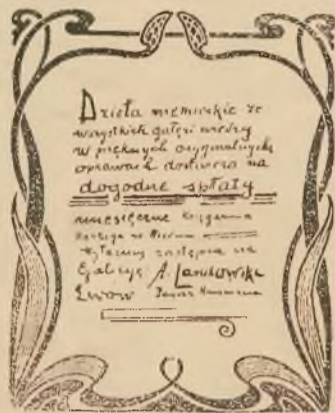 Dzieła niemieckie ze
wszystkich gałęzi wiedzy
w pięknych oryginalnych
oprawach dostarcza na
dogodne spłaty
miesięczne Księgarnia
w Wiedniu
zastępca na
Galicyę A. Landowski
Lwów Pasaż Hausmana